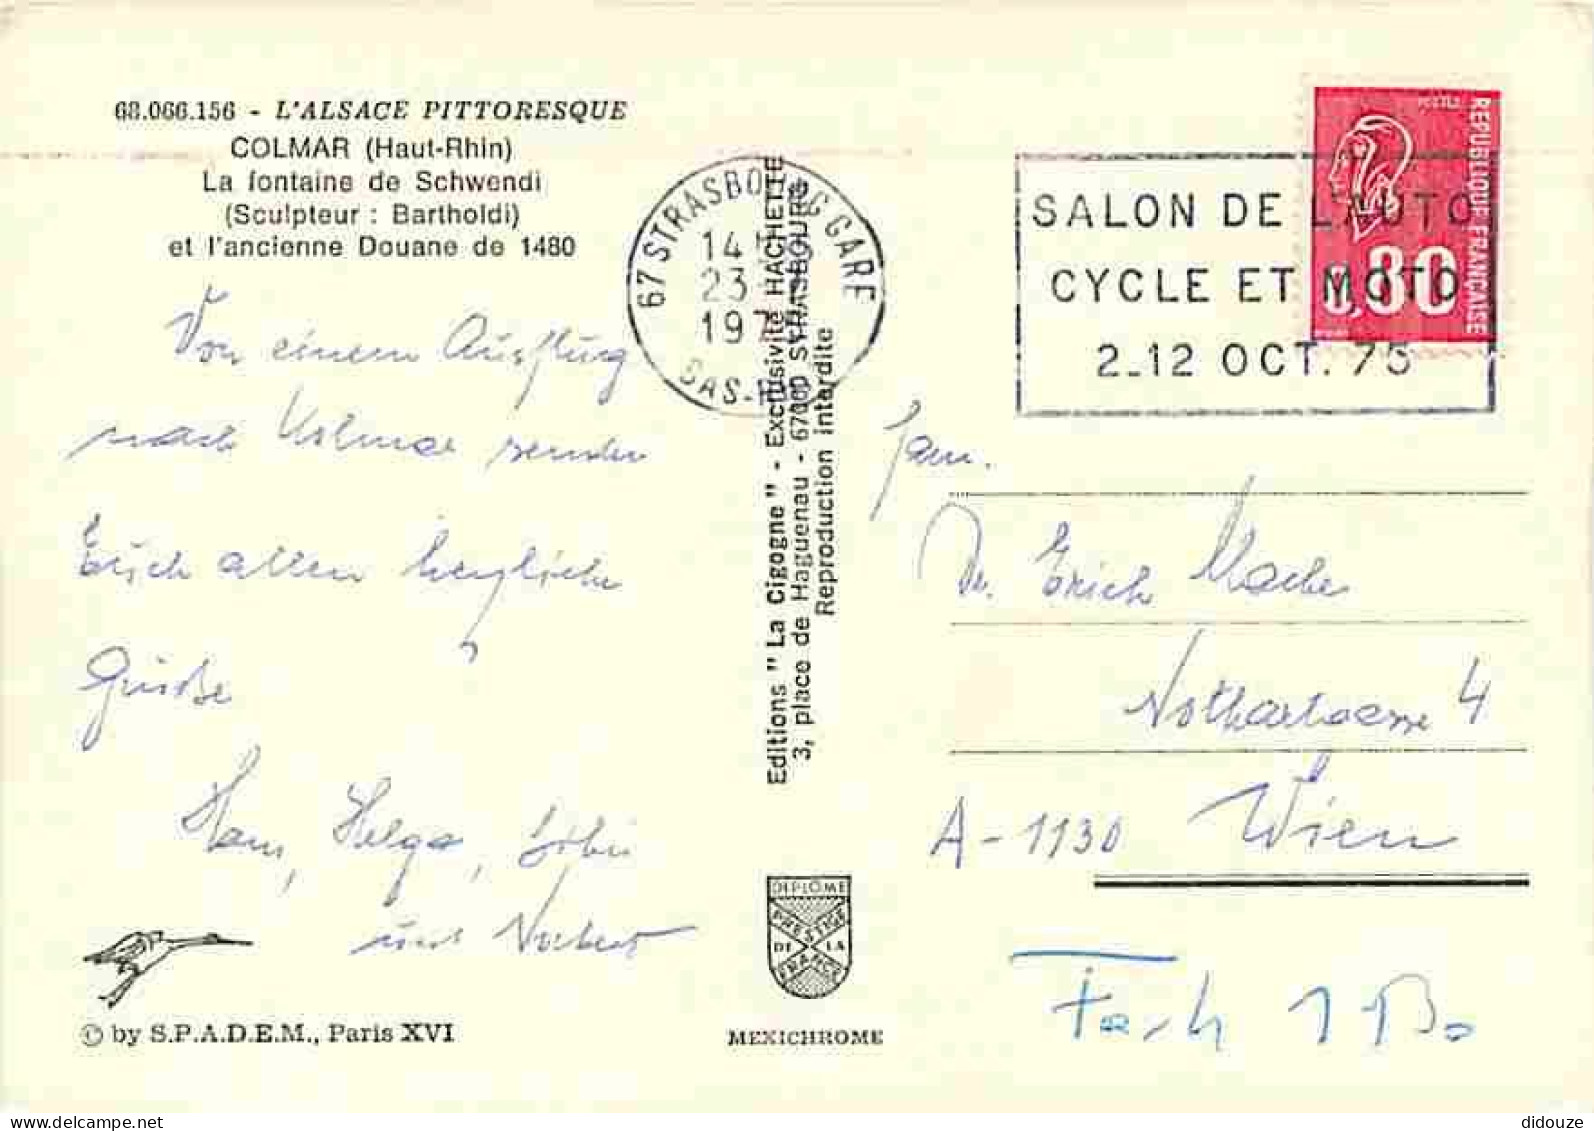 68.066.156 - L'ALSACE PITTORESQUE
COLMAR (Haut-Rhin)
La fontaine de Schwendi
(Sculpteur : Bartholdi)
et l'ancienne Douane de 1480
Von einem Ausflug
nach Kolmar senden
Euch allen herzliche
Grüße
Hans, Helga,
und Norbert
© by S.P.A.D.E.M., Paris XVI
67 STRASBOURG GARE
14 H
23
197
BAS-RHIN
Editions "La Cigogne" - Exclusivité HACHETTE
3, place de Haguenau - 67000 STRASBOURG
Reproduction interdite
DIPLÔME
PRESTIGE
DE LA
FRANCE
MEXICHROME
SALON DE L'AUTO
CYCLE ET MOTO
2-12 OCT. 75
POSTES
REPUBLIQUE FRANÇAISE
0,80
Fam.
Dr. Erich
4
A-1130 Wien
Fach 1
delcampe.net
didouze